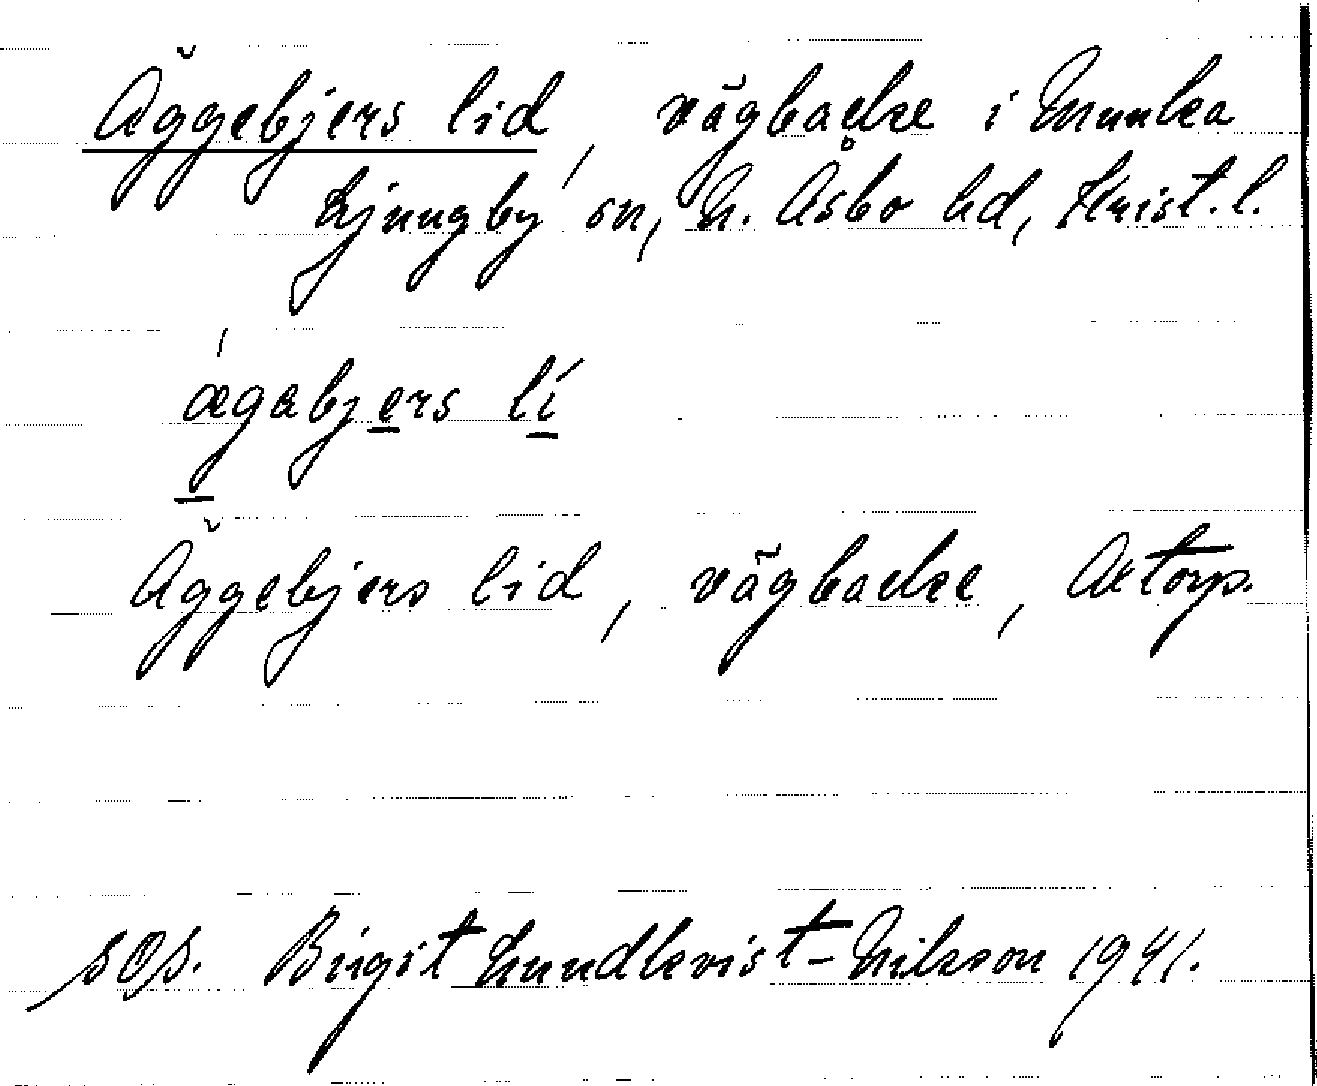 Äggebjers lid, vägbacke i Munka
Ljungby sn, N. Åsbo hd, Krist. l.
ǽgabjers lí
Äggebjers lid, vägbacke, Axtorp.
SOS. Birgit Lundkvist-Nilsson 1941.